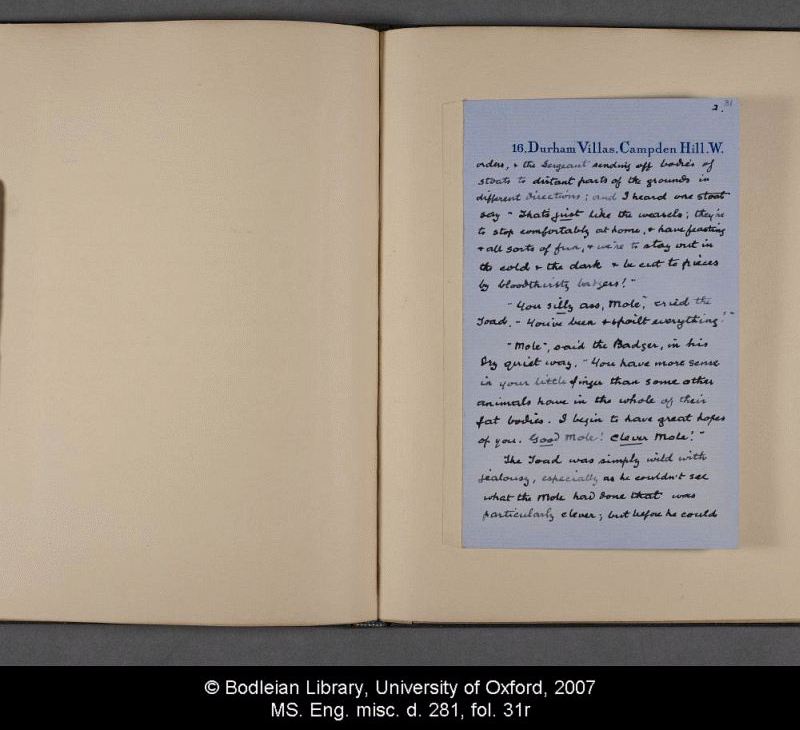 2.
31
16, Durham Villas, Campden Hill. W.
orders, & the Sergeant sending off bodies of
stoats to distant parts of the grounds in
different directions; and I heard one stoat
say "Thats just like the weasels; they're
to stop comfortably at home, & have feasting
& all sorts of fun, & we're to stay out in
the cold & the dark & be cut to pieces
by bloodthirsty badgers!"
"You silly ass, Mole", cried the
Toad, "You've been & spoilt everything!"
"Mole", said the Badger, in his
dry quiet way, "You have more sense
in your little finger than some other
animals have in the whole of their
fat bodies. I begin to have great hopes
of you. Good Mole! Clever Mole!"
The Toad was simply wild with
jealousy, especially as he couldn't see
what the Mole had done that was
particularly clever; but before he could
© Bodleian Library, University of Oxford, 2007
MS. Eng. misc. d. 281, fol. 31r